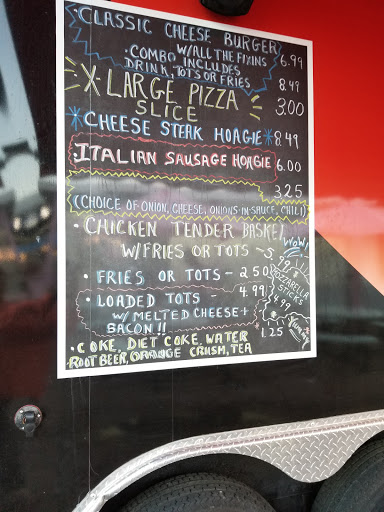 • CLASSIC CHEESE BURGER
W/ALL THE FIXINS 6.99
• COMBO INCLUDES
DRINK, TOTS OR FRIES 8.49
X-LARGE PIZZA
SLICE 3.00
CHEESE STEAK HOAGIE 8.49
ITALIAN SAUSAGE HOAGIE 6.00
3.25
(CHOICE OF ONION, CHEESE, ONIONS-IN-SAUCE, CHILI)
• CHICKEN TENDER BASKET
W/FRIES OR TOTS ~ 5.99
WOW!
• FRIES OR TOTS - 2.50
• LOADED TOTS - 4.99
W/ MELTED CHEESE +
BACON!!
STICKS
4.99
Yummy
• COKE, DIET COKE, WATER 1.25
ROOT BEER, ORANGE CRUSH, TEA